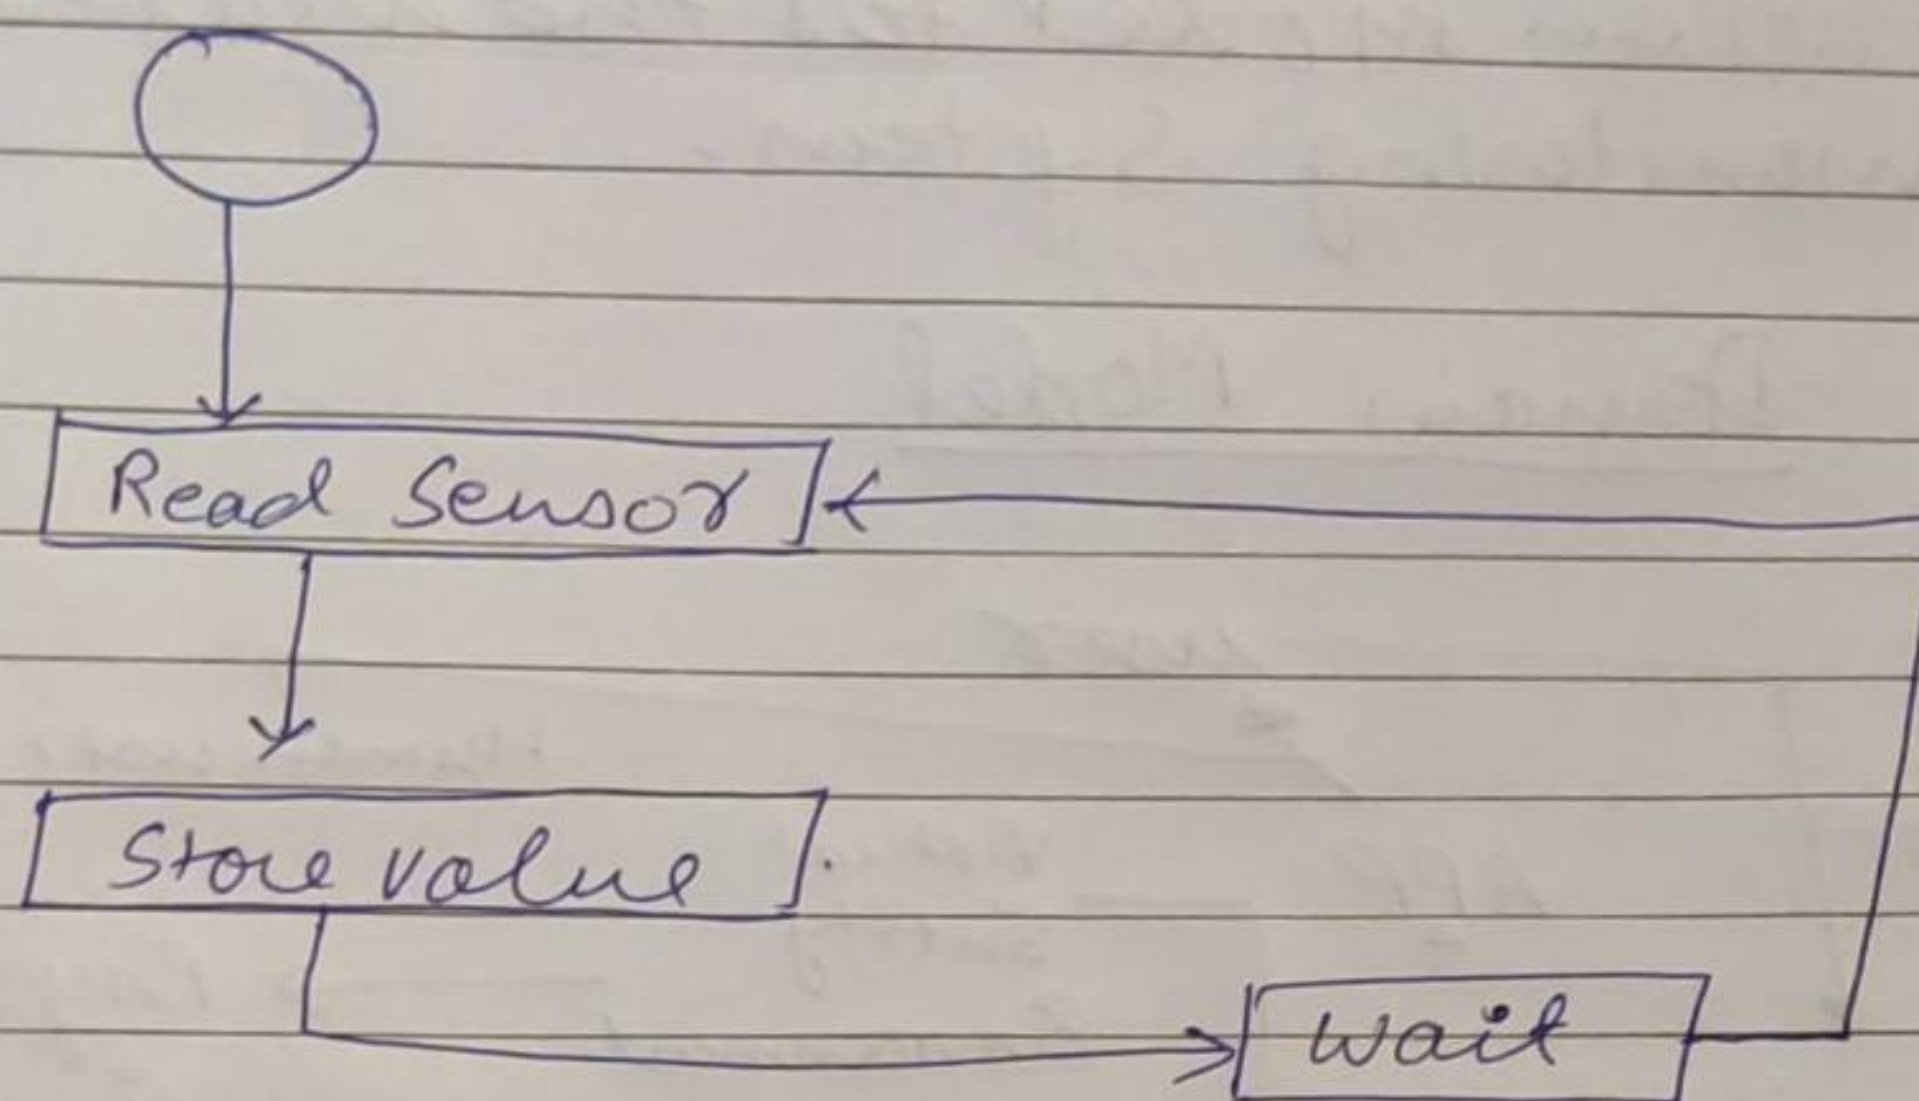 Read Sensor
Store value
Wait